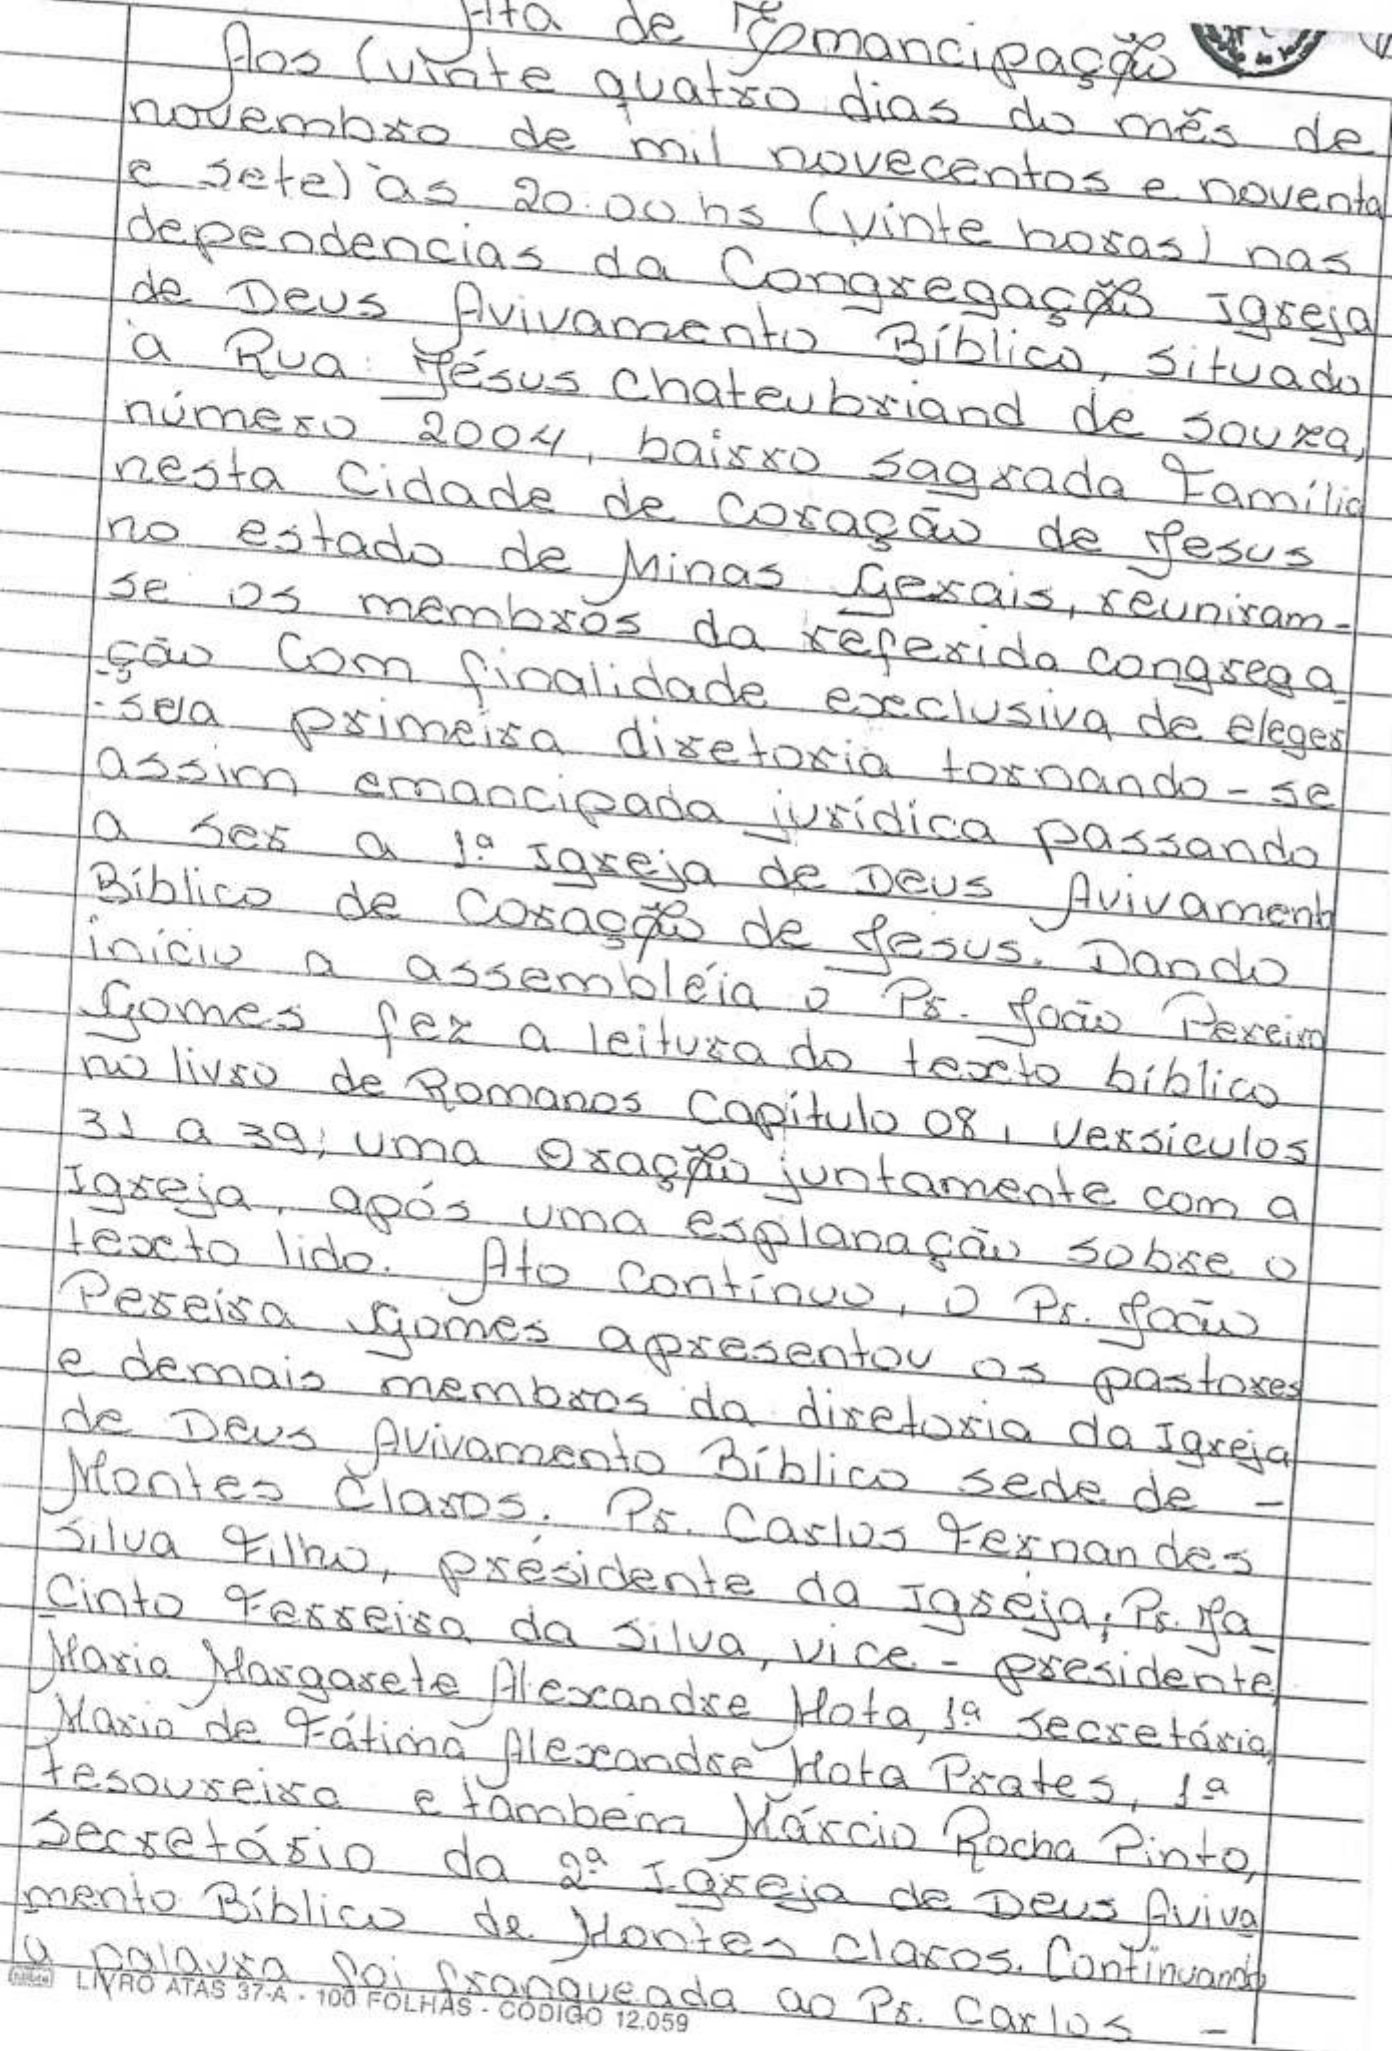 Ata de Emancipação
Aos (vinte quatro dias do mês de
novembro de mil novecentos e noventa
e sete) às 20:00 hs (vinte horas) nas
dependencias da Congregação Igreja
de Deus Avivamento Bíblico, situado
à Rua: Jésus Chateubriand de Souza,
número 2004, bairro Sagrada Família
nesta Cidade de Coração de Jesus
no estado de Minas Gerais, reuniram-
se os membros da referida congrega
-ção Com finalidade exclusiva de eleger
-sua primeira diretoria tornando-se
assim emancipada jurídica passando
a ser a 1ª Igreja de Deus Avivament
Bíblico de Coração de Jesus. Dando
início a assembléia o Pr. João Pereira
Gomes fez a leitura do texto bíblico
no livro de Romanos Capítulo 08, Versiculos
31 a 39; uma Oração juntamente com a
Igreja, após uma esplanação sobre o
texto lido. Ato contínuo, o Pr. João
Pereira Gomes apresentou os pastores
e demais membros da diretoria da Igreja
de Deus Avivamento Bíblico sede de -
Montes Claros. Pr. Carlos Fernandes
Silva Filho, presidente da Igreja; Pr. Ja
Cinto Ferreira da Silva, vice-presidente,
Maria Margarete Alexandre Mota, 1ª secretária,
Maria de Fátima Alexandre Mota Prates, 1ª
tesoureira e também Márcio Rocha Pinto,
Secretário da 2ª Igreja de Deus Aviva
mento Bíblico de Montes Claros. Continuando
a palavra foi franqueada ao Pr. Carlos -
LIVRO ATAS 37-A - 100 FOLHAS - CÓDIGO 12.059